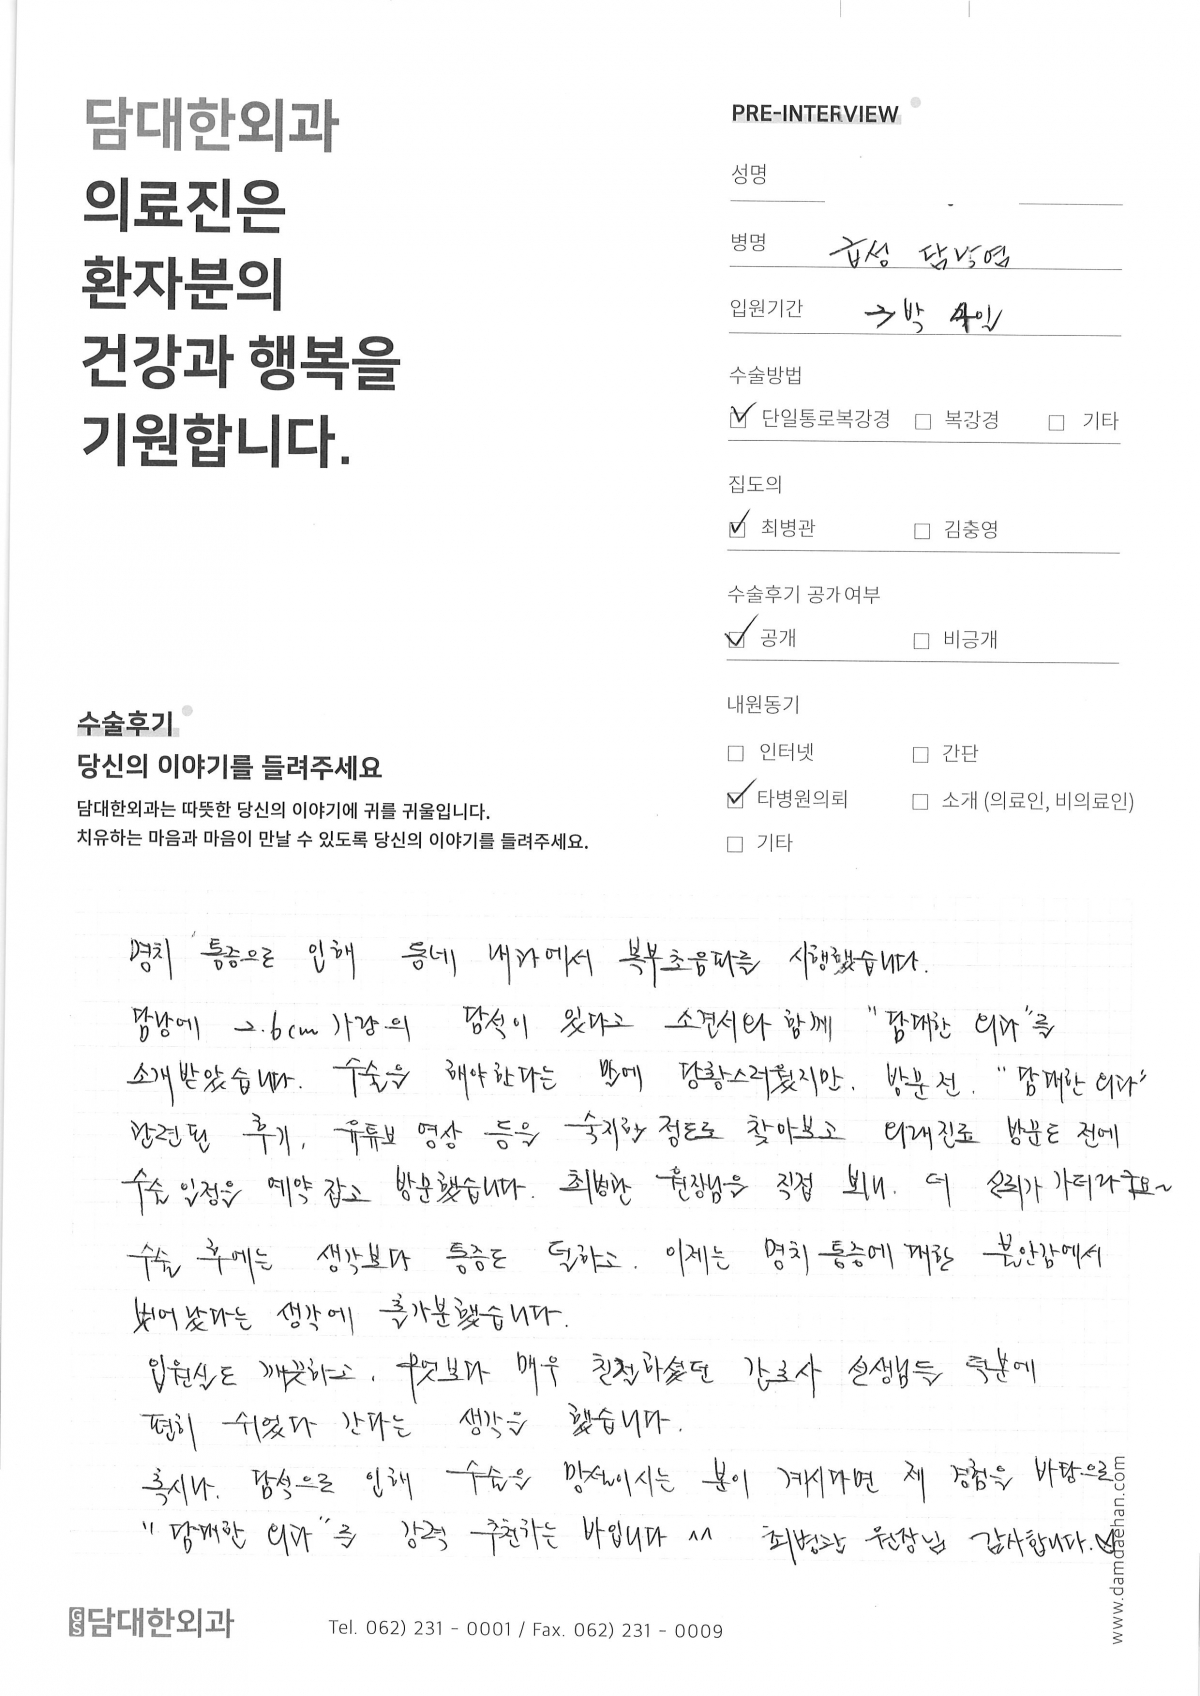 담대한외과
의료진은
환자분의
건강과 행복을
기원합니다.
PRE-INTERVIEW
성명
병명 급성 담낭염
입원기간 2박 일
수술방법
단일통로복강경 복강경 기타
집도의
최병관 김충영
수술후기 공개여부
공개 비공개
내원동기
인터넷 간판
타병원의뢰 소개 (의료인, 비의료인)
기타
수술후기
당신의 이야기를 들려주세요
담대한외과는 따뜻한 당신의 이야기에 귀를 귀울입니다.
치유하는 마음과 마음이 만날 수 있도록 당신의 이야기를 들려주세요.
명치 통증으로 인해 동네 내과에서 복부초음파를 시행했습니다.
담낭에 2.6cm 가량의 담석이 있다고 소견서와 함께 "담대한 외과"를
소개받았습니다. 수술을 해야한다는 말에 당황스러웠지만, 방문 전, "담대한 외과"
관련된 후기, 유튜브 영상 등을 숙지할 정도로 찾아보고 외래진료 방문도 전에
수술 일정을 예약 잡고 방문했습니다. 최병관 원장님을 직접 뵈니, 더 신뢰가 가더라구요~
수술 후에는 생각보다 통증도 덜하고, 이제는 명치 통증에 대한 불안감에서
벗어 났다는 생각에 홀가분했습니다.
입원실도 깨끗하고, 무엇보다 매우 친절하셨던 간호사 선생님들 덕분에
편히 쉬었다 간다는 생각을 했습니다.
혹시나, 담석으로 인해 수술을 망설이시는 분이 계시다면 제 경험을 바탕으로
"담대한 외과"를 강력 추천하는 바입니다 ^^ 최병관 원장님 감사합니다.
GS 담대한외과
Tel. 062) 231 - 0001 / Fax. 062) 231 - 0009
www.damdaehan.com